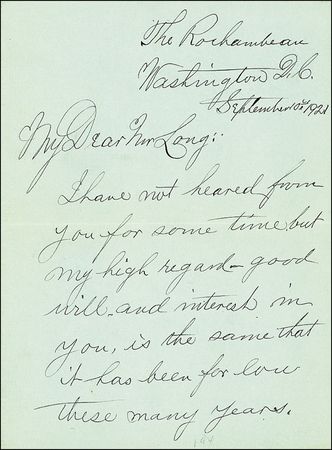 The Rochambeau
Washington D.C.
September 10, 1921
My Dear Mr Long:
I have not heared from
you for some time but
my high regard - good
will and interest in
you, is the same that
it has been for low
these many years.